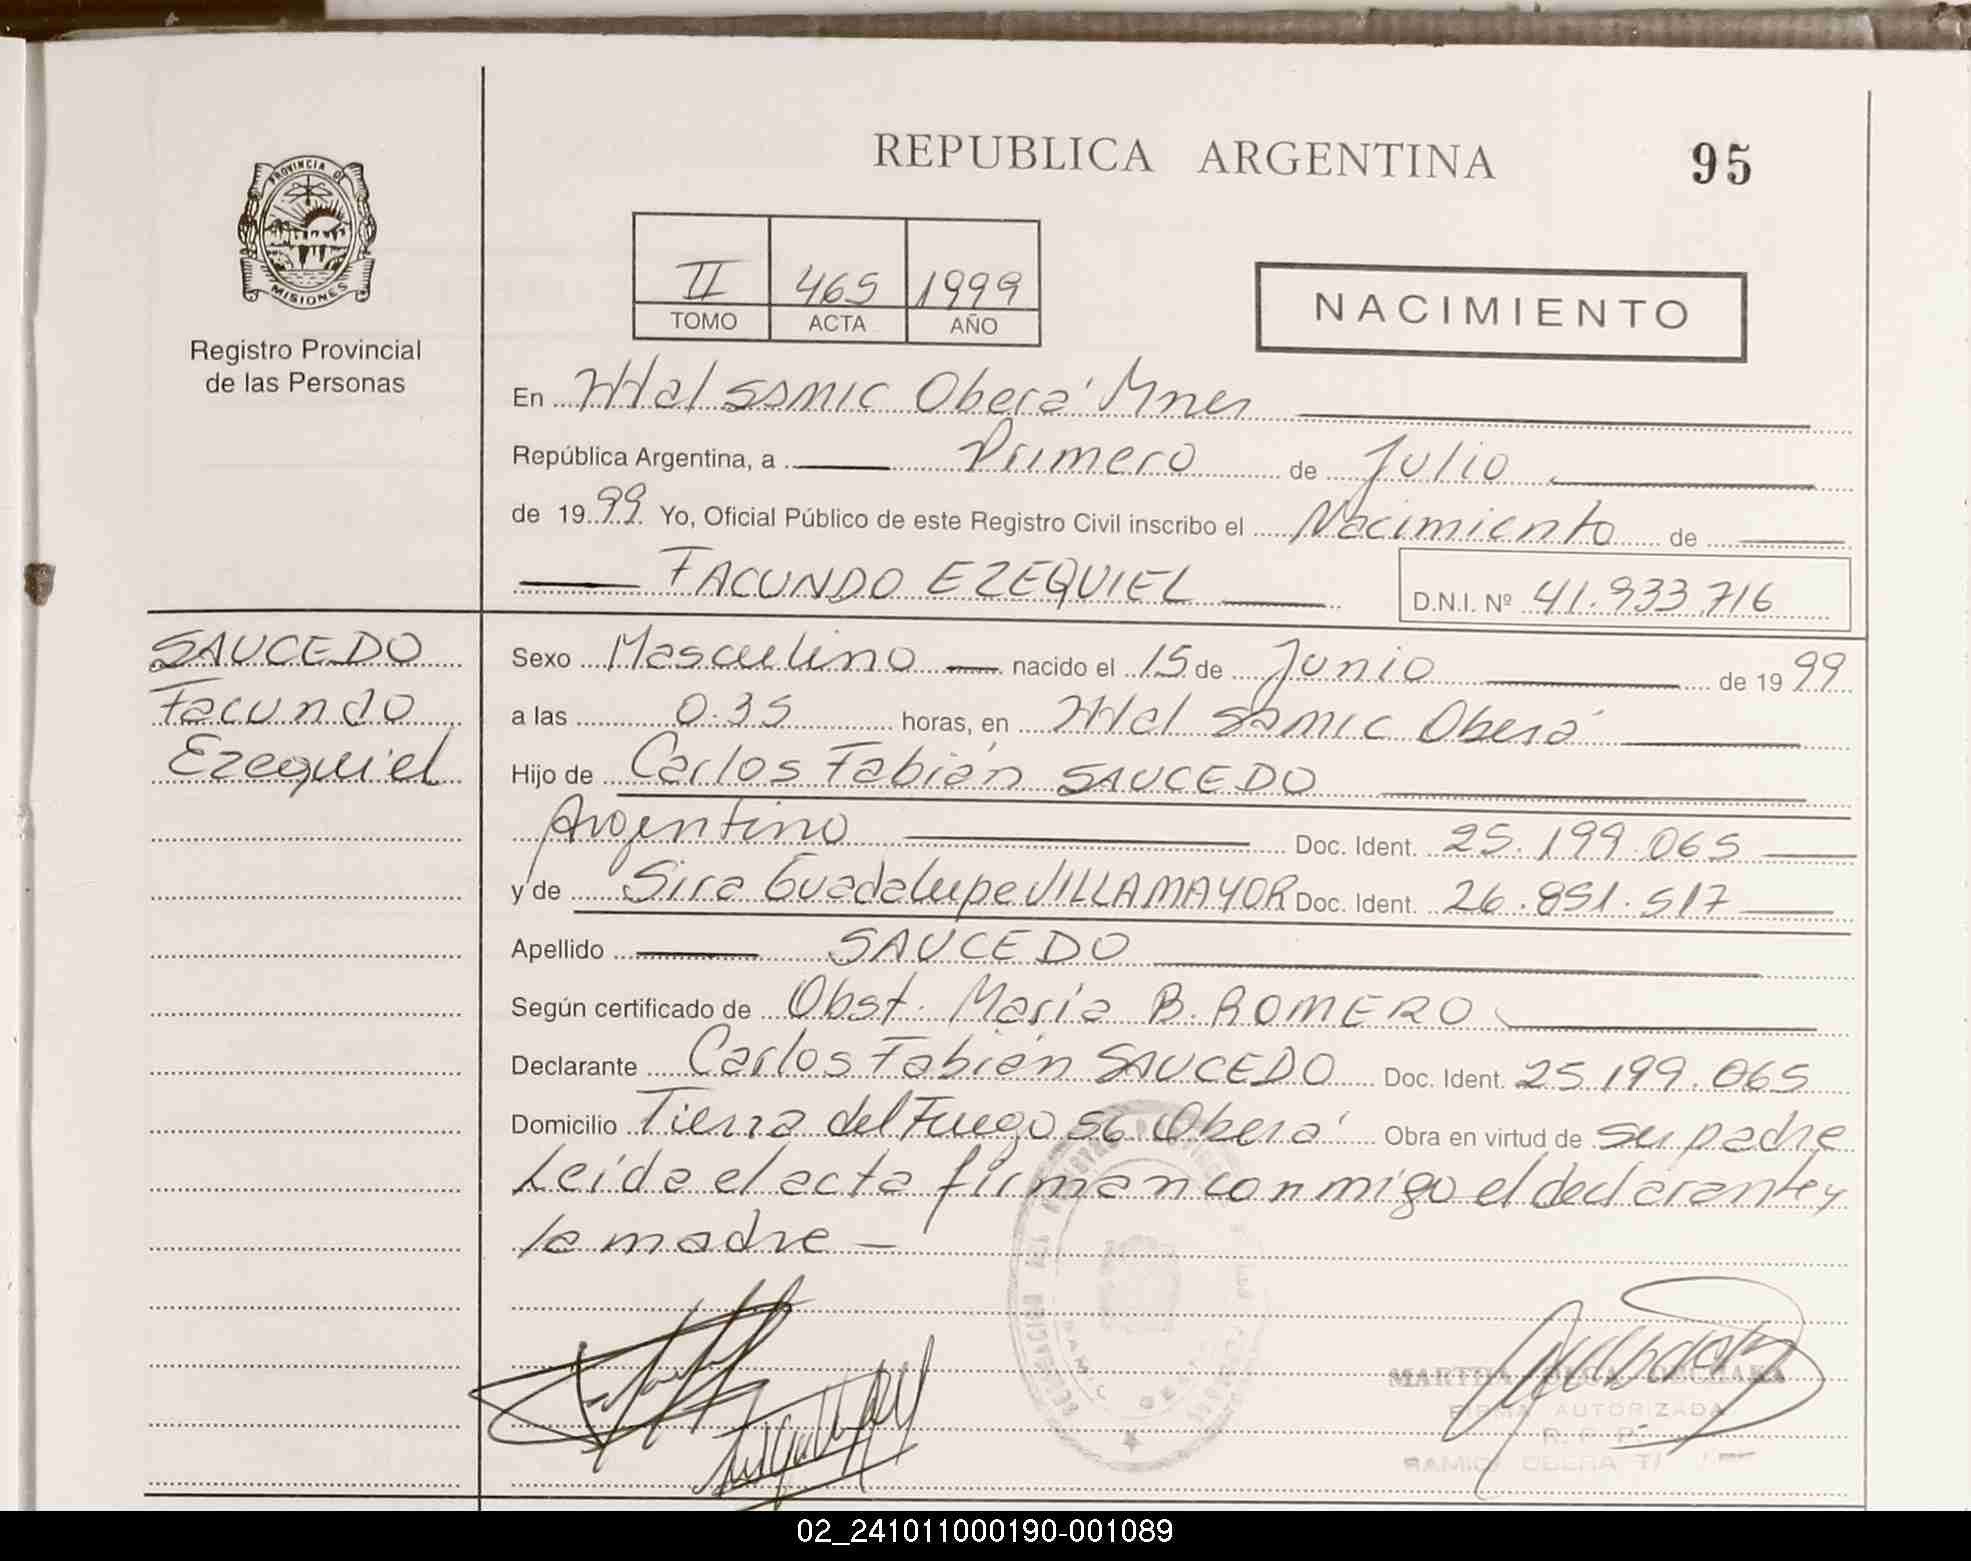 PROVINCIA DE
MISIONES
Registro Provincial
de las Personas
REPUBLICA ARGENTINA 95
II 465 1999
TOMO ACTA AÑO
NACIMIENTO
En Htal SAMIC Oberá Mnes
República Argentina, a Primero de Julio
de 1999 Yo, Oficial Público de este Registro Civil inscribo el Nacimiento de
FACUNDO EZEQUIEL D.N.I. Nº 41.933.716
SAUCEDO
Facundo
Ezequiel
Sexo Masculino nacido el 15 de Junio de 1999
a las 0.35 horas, en Htal SAMIC Oberá
Hijo de Carlos Fabián SAUCEDO
Argentino Doc. Ident. 25.199.065
y de Sira Guadalupe VILLAMAYOR Doc. Ident. 26.851.517
Apellido SAUCEDO
Según certificado de Obst. María B. ROMERO
Declarante Carlos Fabián SAUCEDO Doc. Ident. 25.199.065
Domicilio Tierra del Fuego 56 Oberá Obra en virtud de su padre
Leída el acta firman conmigo el declarante y
la madre —
MARTHA OLGA
FIRMA AUTORIZADA
R. P. P.
02_241011000190-001089